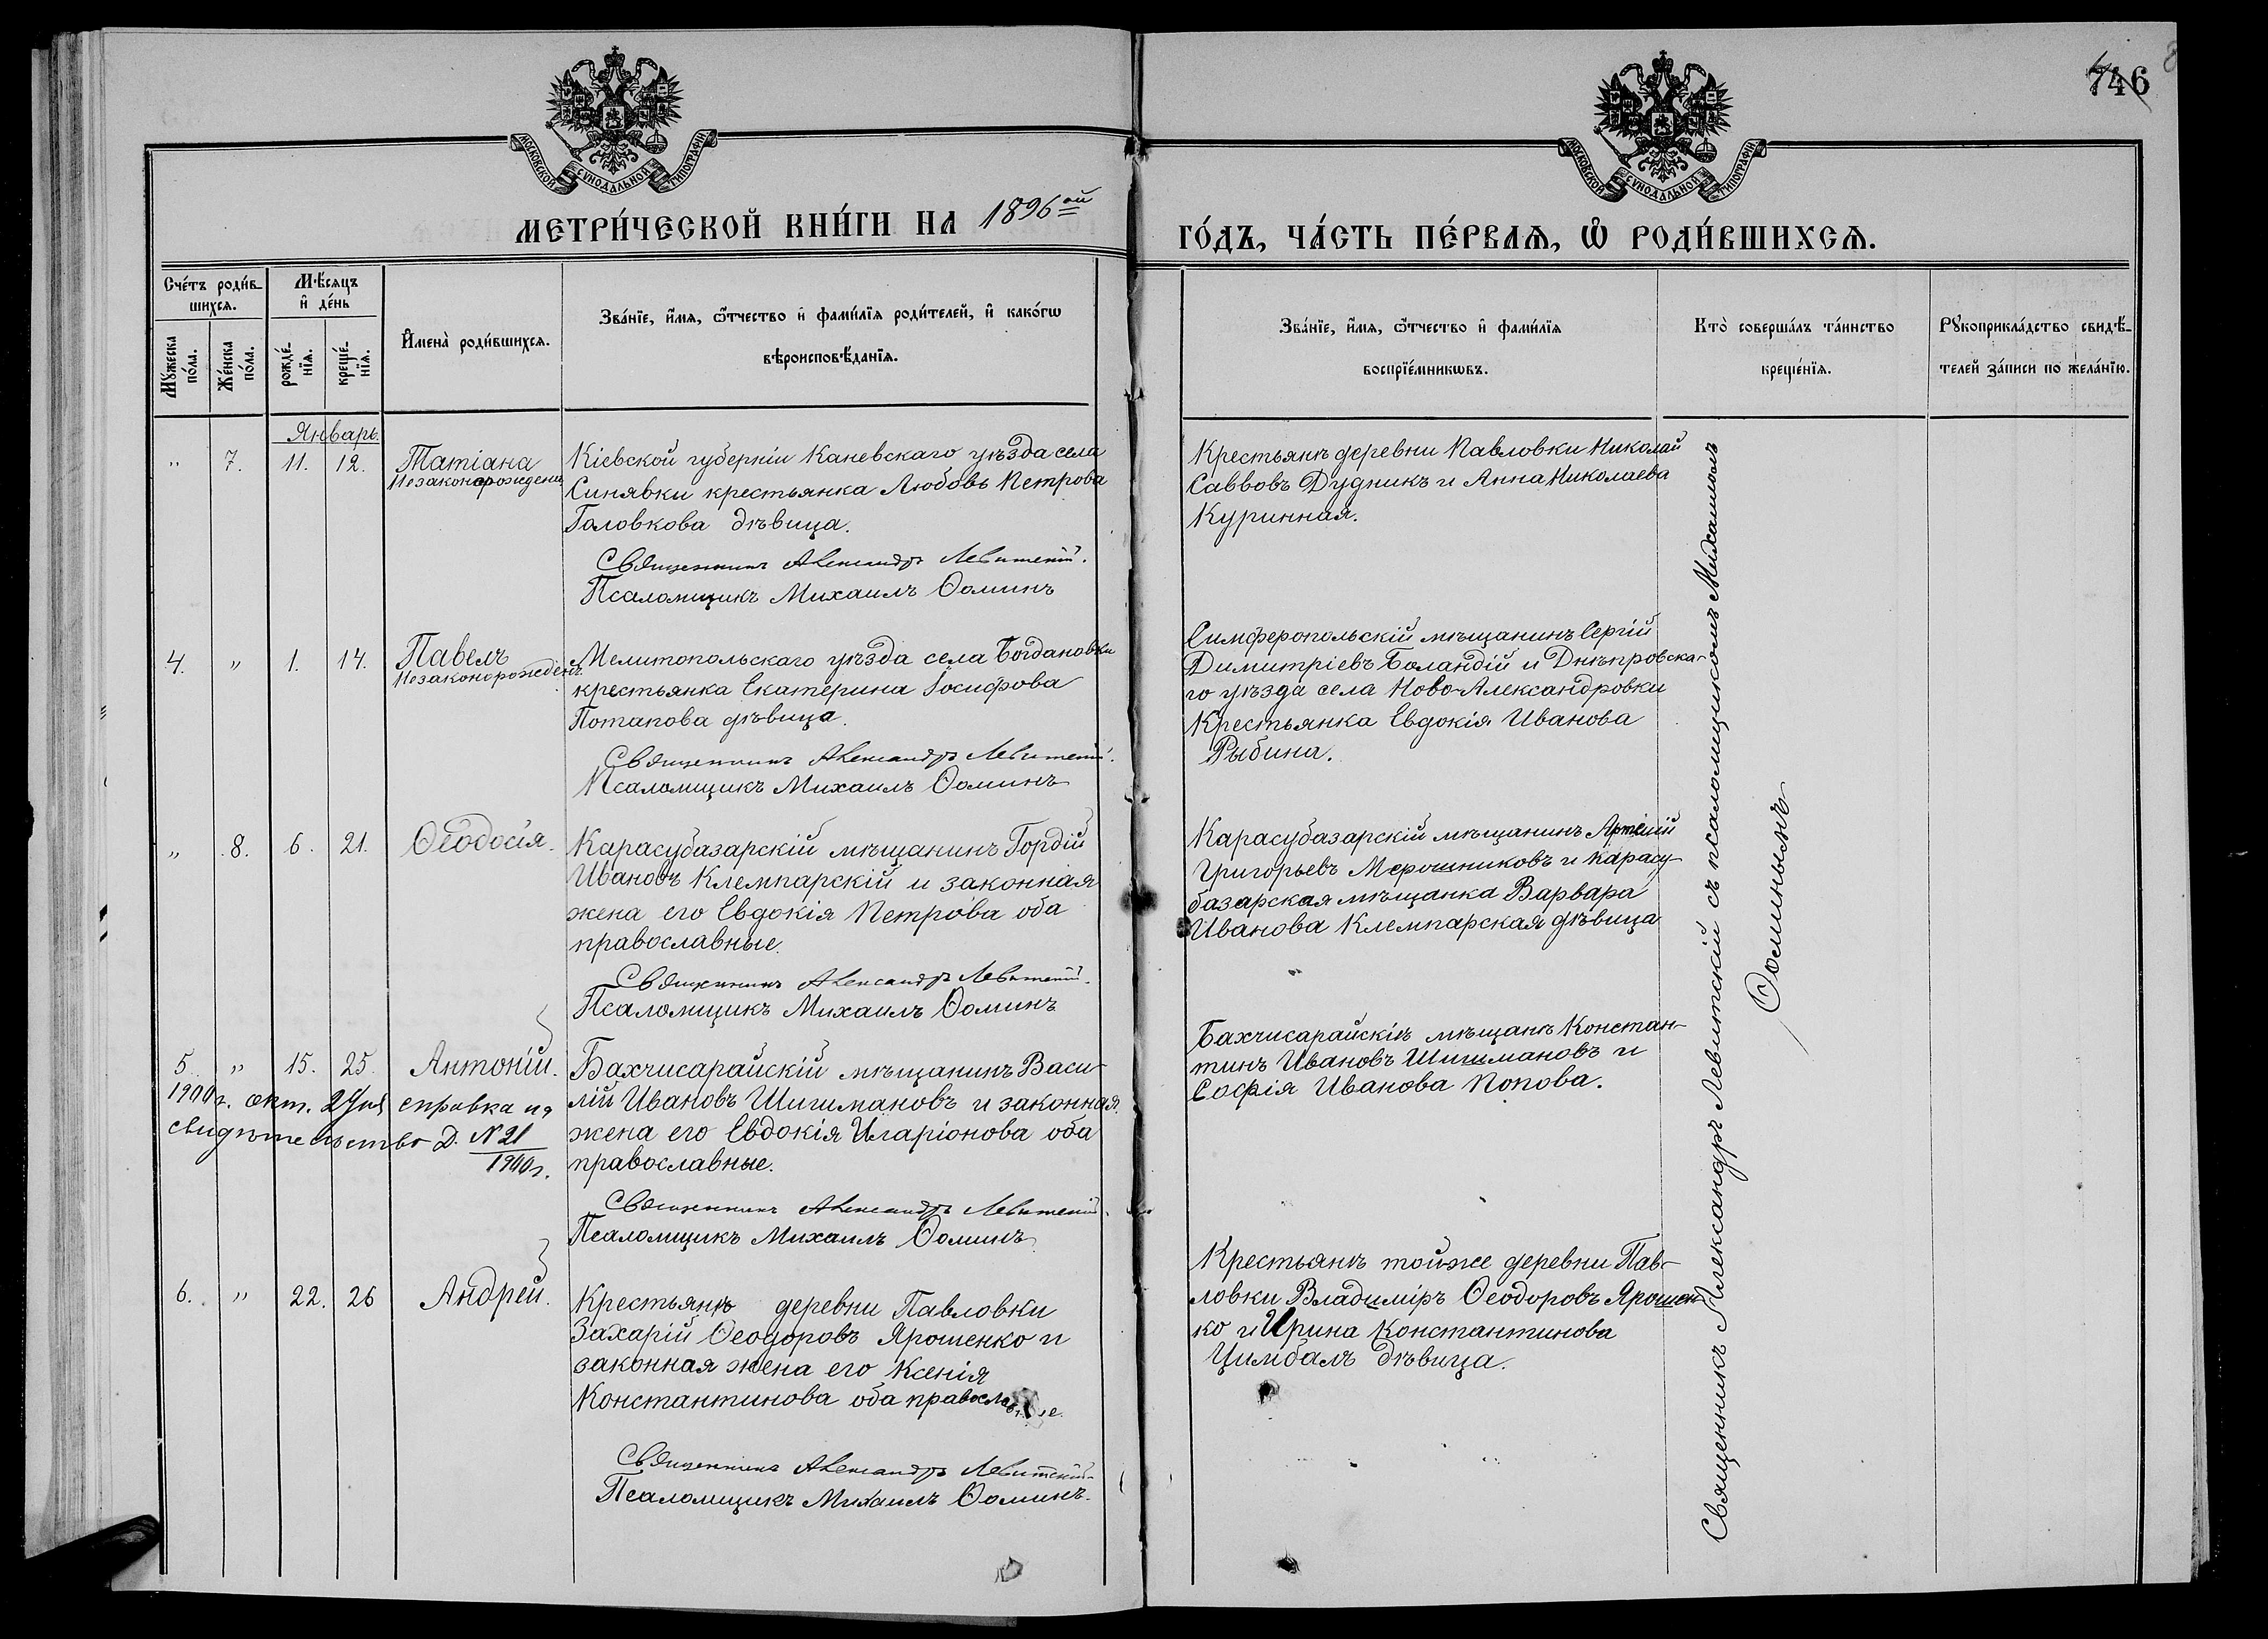 746
МОСКОВСКОЙ СУНОДАЛЬНОЙ ТИПОГРАФІИ
МОСКОВСКОЙ СУНОДАЛЬНОЙ ТИПОГРАФІИ
МЕТРИ́ЧЕСКОЙ КНИ́ГИ НА 1896ой
ГО́ДЪ, ЧА́СТЬ ПЕ́РВАѦ, Ѡ РОДИ́ВШИХСѦ.
Сче́тъ роди́в-
шихсѧ.
Мѣ́сѧцъ
и҆ де́нь
Мꙋ́жеска
по́ла.
Же́нска
по́ла.
рожде́-
нїѧ.
креще́-
нїѧ.
И҆мена̀ роди́вшихсѧ.
Зва́нїе, и҆́мѧ, ѻ҆́тчество и҆ фами́лїѧ роди́телей, и҆ како́гѡ
вѣроисповѣ́данїѧ.
Зва́нїе, и҆́мѧ, ѻ҆́тчество и҆ фами́лїѧ
воспрїе́мникѡвъ.
Кто̀ соверша́лъ та́инство
креще́нїѧ.
Рꙋкоприкла́дство свидѣ́-
телей за́писи по жела́нїю.
Январь.
" 7. 11. 12. Татіана
Незаконорожден
Кіевской губерніи Каневскаго уѣзда села
Синявки крестьянка Любовь Петрова
Головкова дѣвица.
Священникъ Александръ Левитскій.
Псаломщикъ Михаилъ Ѳоминъ
Крестьянѣ деревни Павловки Николай
Саввовъ Дудникъ и Анна Николаева
Куринная.
4. " 1. 14. Павелъ
Незаконорожденъ
Мелитопольскаго уѣзда села Богдановки
крестьянка Екатерина Іосифова
Потапова дѣвица.
Священникъ Александръ Левитскій.
Псаломщикъ Михаилъ Ѳоминъ
Симферопольскій мѣщанинъ Сергій
Димитріевъ Боландій и Днѣпровска-
го уѣзда села Ново-Александровки
Крестьянка Евдокія Иванова
Рыбина.
" 8. 6. 21. Ѳеодосія.
Карасубазарскій мѣщанинъ Гордій
Ивановъ Клемпарскій и законная
жена его Евдокія Петрова оба
православные.
Священникъ Александръ Левитскій.
Псаломщикъ Михаилъ Ѳоминъ
Карасубазарскій мѣщанинъ Артемій
Григорьевъ Мерошниковъ и карасу-
базарская мѣщанка Варвара
Иванова Клемпарская дѣвица
5. " 15. 25. Антоній.
1900 г. окт. 2 справка на
свидѣтельство Д. № 21
1900 г.
Бахчисарайскій мѣщанинъ Васи-
лій Ивановъ Шишмановъ и законная
жена его Евдокія Иларіонова оба
православные.
Священникъ Александръ Левитскій.
Псаломщикъ Михаилъ Ѳоминъ
Бахчисарайскіѣ мѣщанѣ Констан-
тинъ Ивановъ Шишмановъ и
Софія Иванова Попова.
6. " 22. 26 Андрей.
Крестьянѣ деревни Павловки
Захарій Ѳеодоровъ Ярошенко и
законная жена его Ксенія
Константинова оба православные.
Священникъ Александръ Левитскій
Псаломщикъ Михаилъ Ѳоминъ.
Крестьянѣ той-же деревни Пав-
ловки Владиміръ Ѳеодоровъ Ярошен-
ко и Ирина Константинова
Цимбалъ дѣвица.
Священникъ Александръ Левитскій съ псаломщикомъ Михаиломъ
Ѳоминымъ